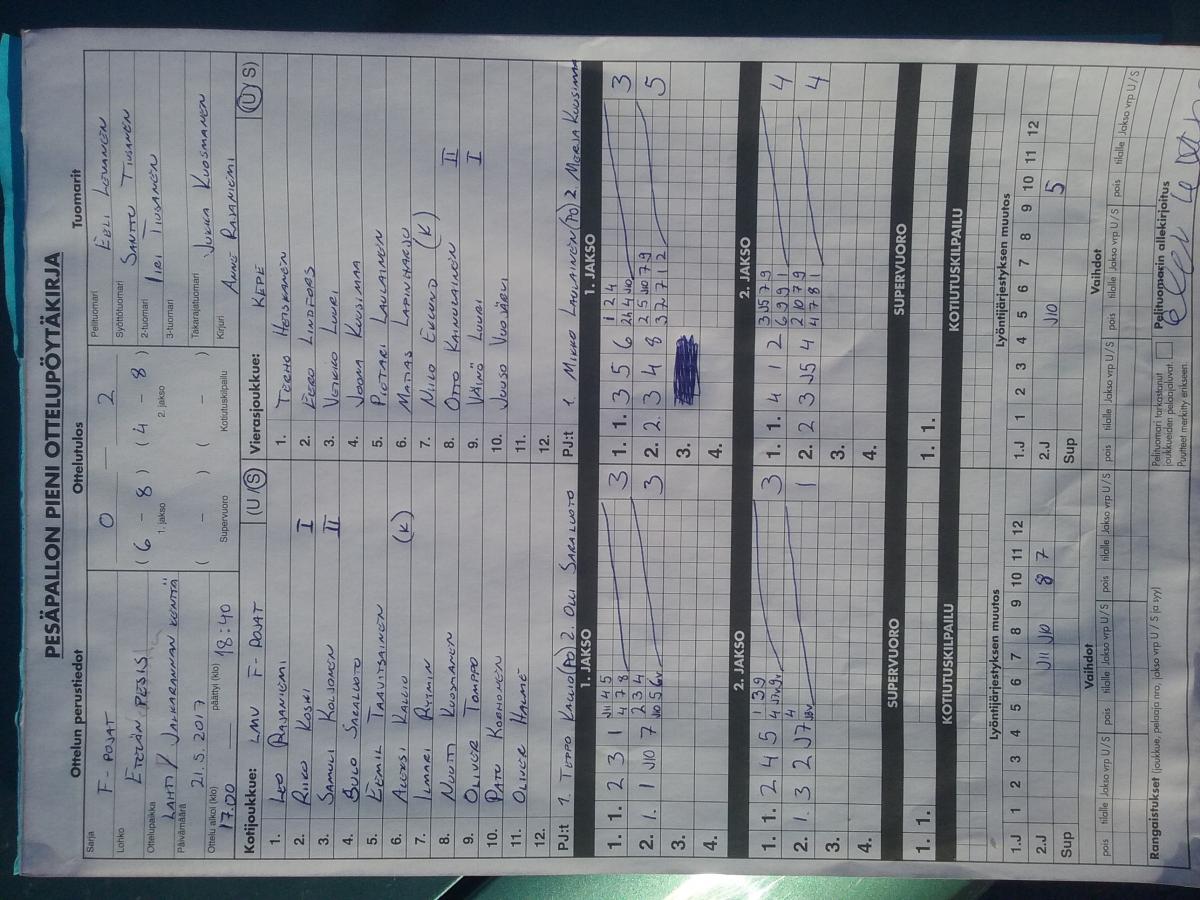 PESÄPALLON PIENI OTTELUPÖYTÄKIRJA
Ottelun perustiedot
Sarja F-POJAT
Lohko ETELÄN PESIS
Ottelupaikka LAHTI / JALKARANNAN KENTTÄ
Päivämäärä 21.5.2017
Ottelu alkoi (klo) 17.00 päättyi (klo) 18:40
Ottelutulos
0 — 2
(6 – 8) (4 – 8)
1. jakso 2. jakso
( – ) ( – )
Supervuoro Kotiutuskilpailu
Tuomarit
Pelituomari EELI
Syöttötuomari SANTTU TIUSANEN
2-tuomari IIRI TIUSANEN
3-tuomari
Takarajatuomari JUKKA KUOSMANEN
Kirjuri ANNE RAJANIEMI
Kotijoukkue: LMV F-POJAT (U/S)
1. LEO RAJANIEMI
2. RIIKO KOSKI I
3. SAMULI KOLJONEN II
4. SARALUOTO
5. EEMIL TAAVITSAINEN
6. ALEKSI KALLIO (K)
7. ILMARI
8. NUUTTI KUOSMANEN
9. OLIVER TOMPPO
10. PATU KORHONEN
11. OLIVER HALME
12.
PJ:t 1. TEPPO KALLIO (PO) 2. OLLI SARALUOTO
Vierasjoukkue: KEPE (U/S)
1. TERHO HEISKANEN
2. EERO LINDFORS
3. VEIKKO LUURI
4. JOONA KUUSIMAA
5. PIETARI LAULAINEN
6. MATIAS LAPINHARJU
7. NIILO EKLUND (K)
8. OTTO KAINULAINEN II
9. VÄINÖ LUURI I
10. JUUSO VUOJÄRVI
11.
12.
PJ:t 1. MIKKO LAULAINEN (PO) 2. MERJA KUUSIMAA
1. JAKSO
1. 1. 2 3 1 J11 4 5 4 7 8 3
2. 1. 1 J10 7 2 3 4 3
3.
4.
1. JAKSO
1. 1. 3 5 6 1 2 4 2 4 J10 3
2. 2. 3 4 8 2 5 J10 7 9 3 7 7 1 2 5
3.
4.
2. JAKSO
1. 1. 2 4 5 1 3 9 3
2. 1. 3 2 J7 4 1
3.
4.
2. JAKSO
1. 1. 4 1 2 3 J5 7 9 6 9 9 1 4
2. 2 3 J5 4 2 10 7 9 4 7 8 1 4
3.
4.
SUPERVUORO
1. 1.
SUPERVUORO
1. 1.
KOTIUTUSKILPAILU
KOTIUTUSKILPAILU
Lyöntijärjestyksen muutos
1.J 1 2 3 4 5 6 7 8 9 10 11 12
2.J J11 J10 8 7
Sup
Lyöntijärjestyksen muutos
1.J 1 2 3 4 5 6 7 8 9 10 11 12
2.J J10 5
Sup
Vaihdot
pois tilalle Jakso vrp U/S pois tilalle Jakso vrp U/S pois tilalle Jakso vrp U/S
Vaihdot
pois tilalle Jakso vrp U/S pois tilalle Jakso vrp U/S pois tilalle Jakso vrp U/S
Rangaistukset (joukkue, pelaaja nro, jakso vrp U / S ja syy)
Pelituomari tarkastanut
joukkueiden pelaajaluvat.
Puutteet merkitty erikseen.
Pelituomarin allekirjoitus